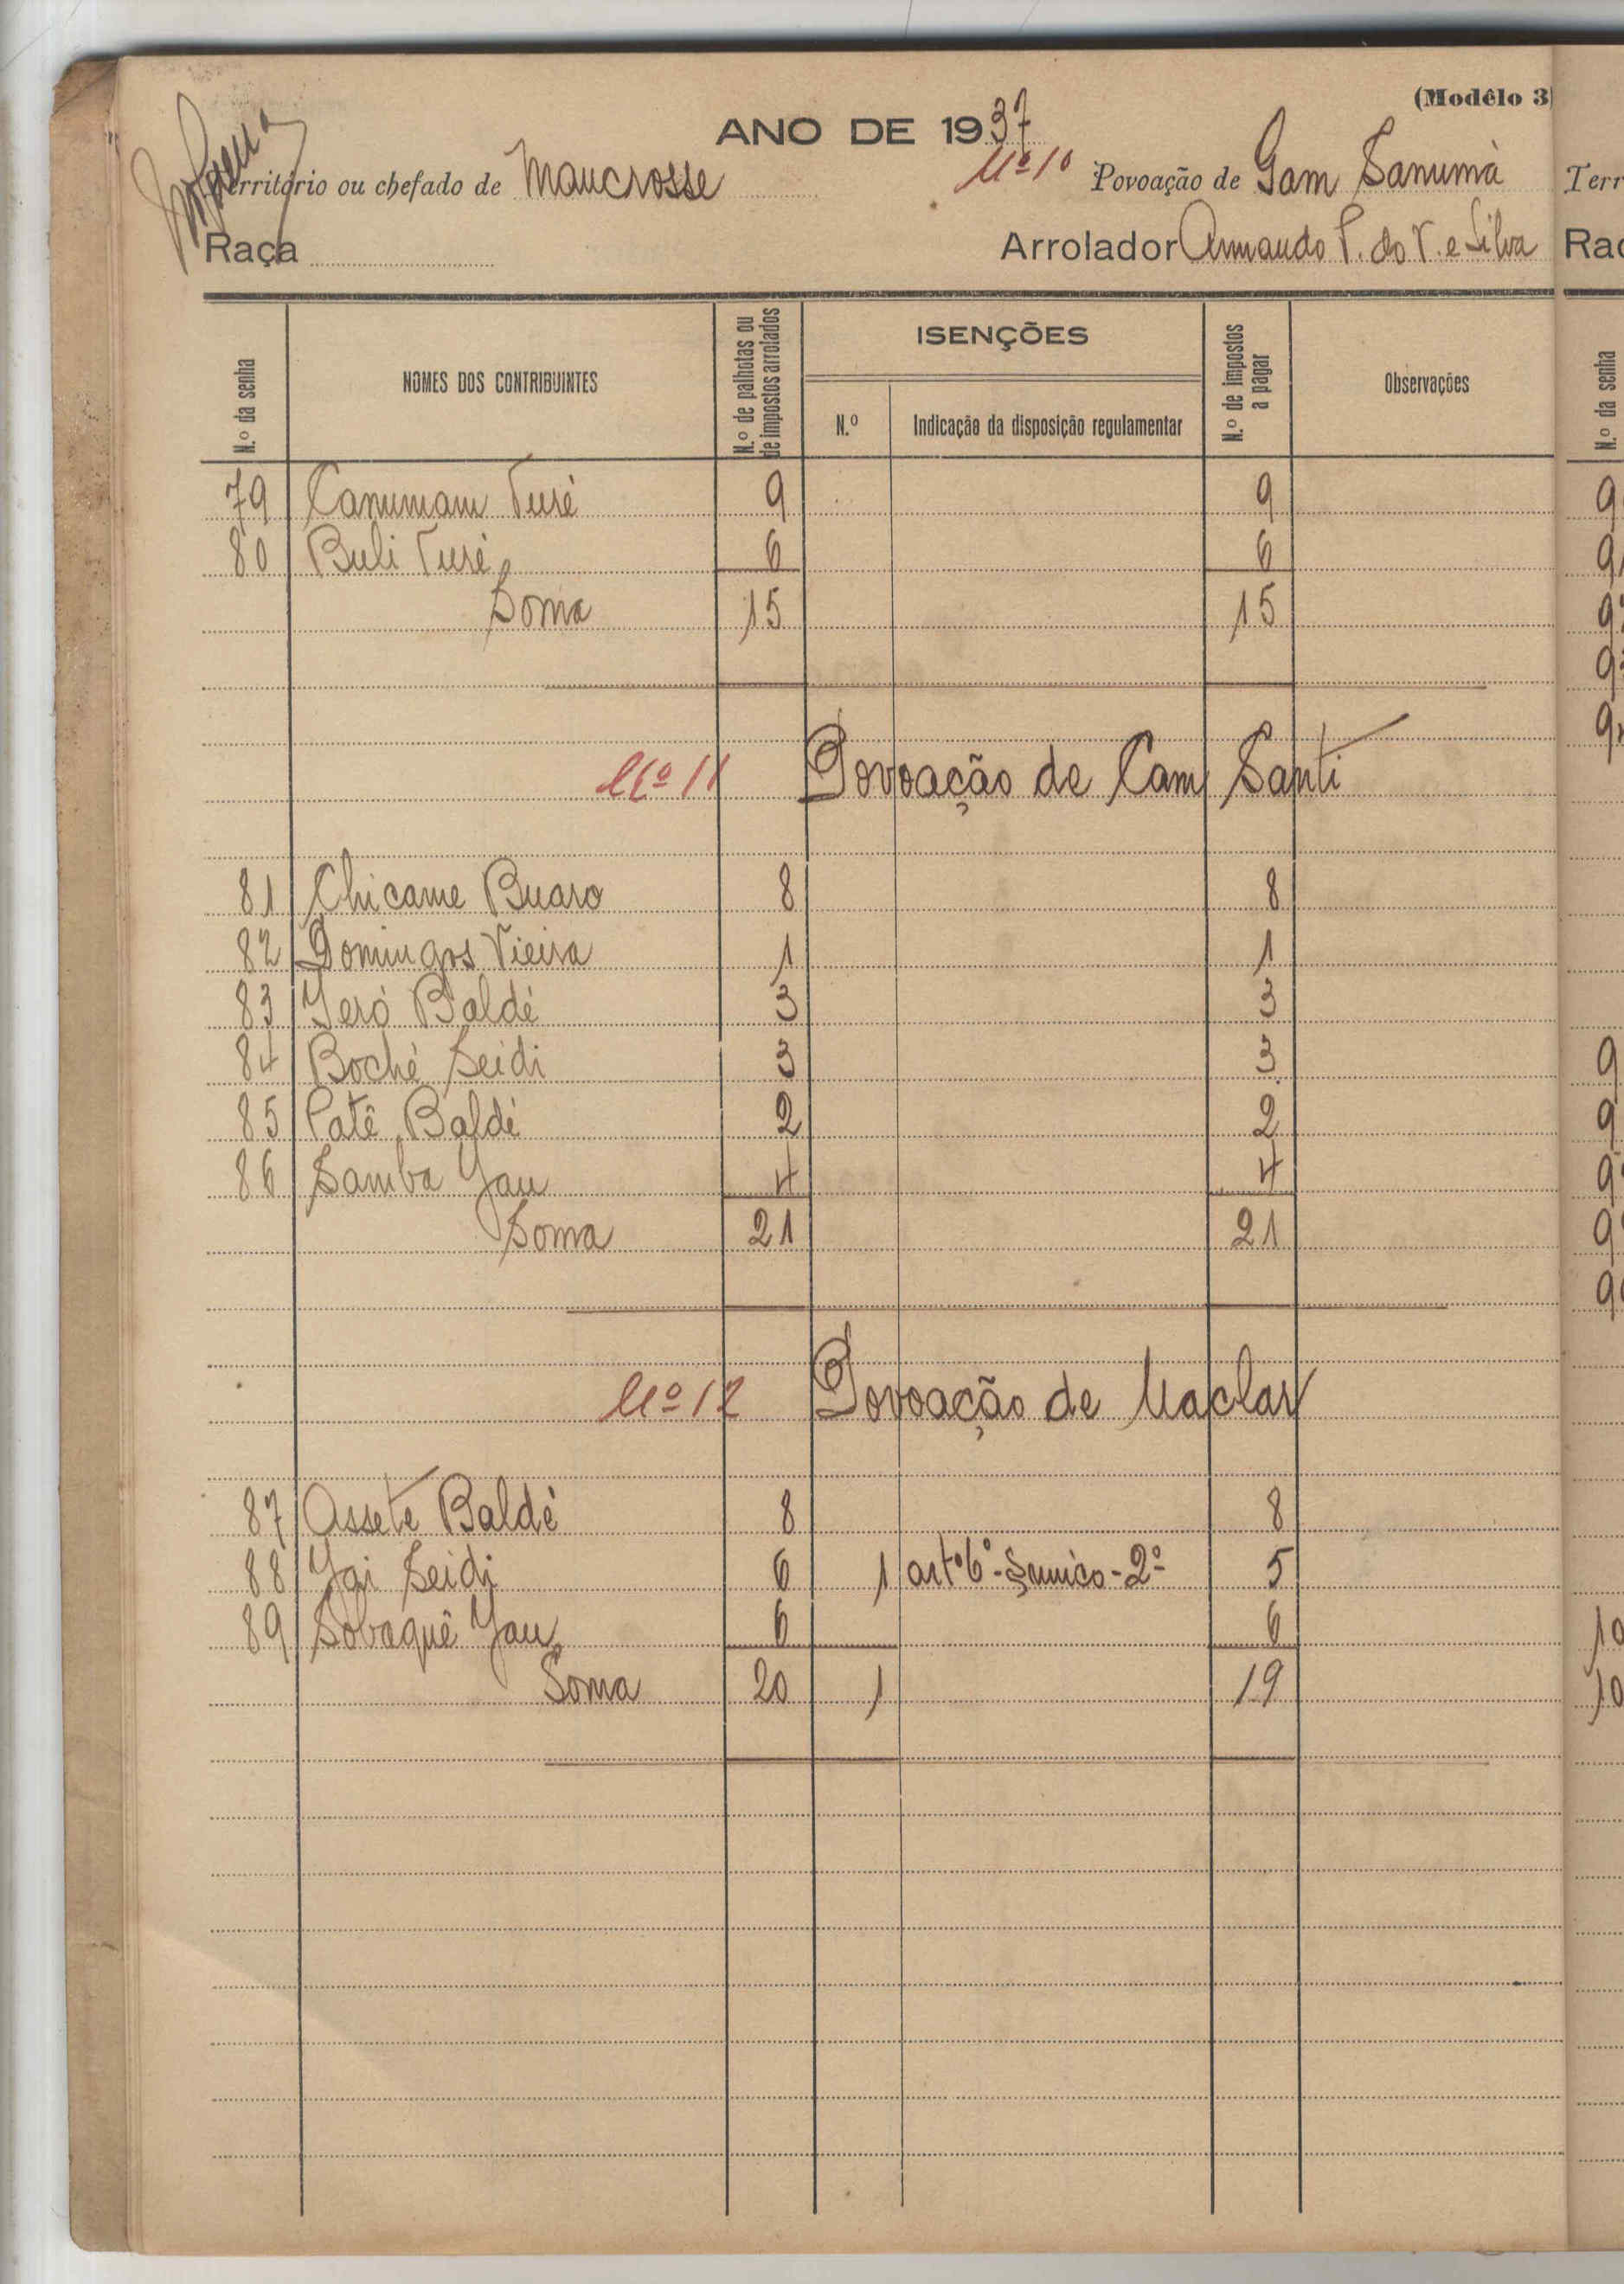 (Modêlo 3)
ANO DE 1937
Território ou chefado de Mancrosse Nº 10 Povoação de Gam Sanumá
Raça Arrolador Armando P. do V. e Silva
N.º da senha NOMES DOS CONTRIBUINTES N.º de palhotas ou de impostos arrolados ISENÇÕES N.º Indicação da disposição regulamentar N.º de impostos a pagar Observações
79 Canumam Turé 9 9
80 Buli Turé 6 6
Soma 15 15
Nº 11 Povoação de Cam Santi
81 Chicame Buaro 8 8
82 Domingos Vieira 1 1
83 Jeró Baldé 3 3
84 Boché Seidi 3 3
85 Patê Baldé 2 2
86 Samba Jau 4 4
Soma 21 21
Nº 12 Povoação de Uaclar
87 Assete Baldé 8 8
88 Jai Seidi 6 1 artº 6º - § unico - 2º 5
89 Sobaquê Jau 6 6
Soma 20 1 19
Terr
Rac
N.º da senha